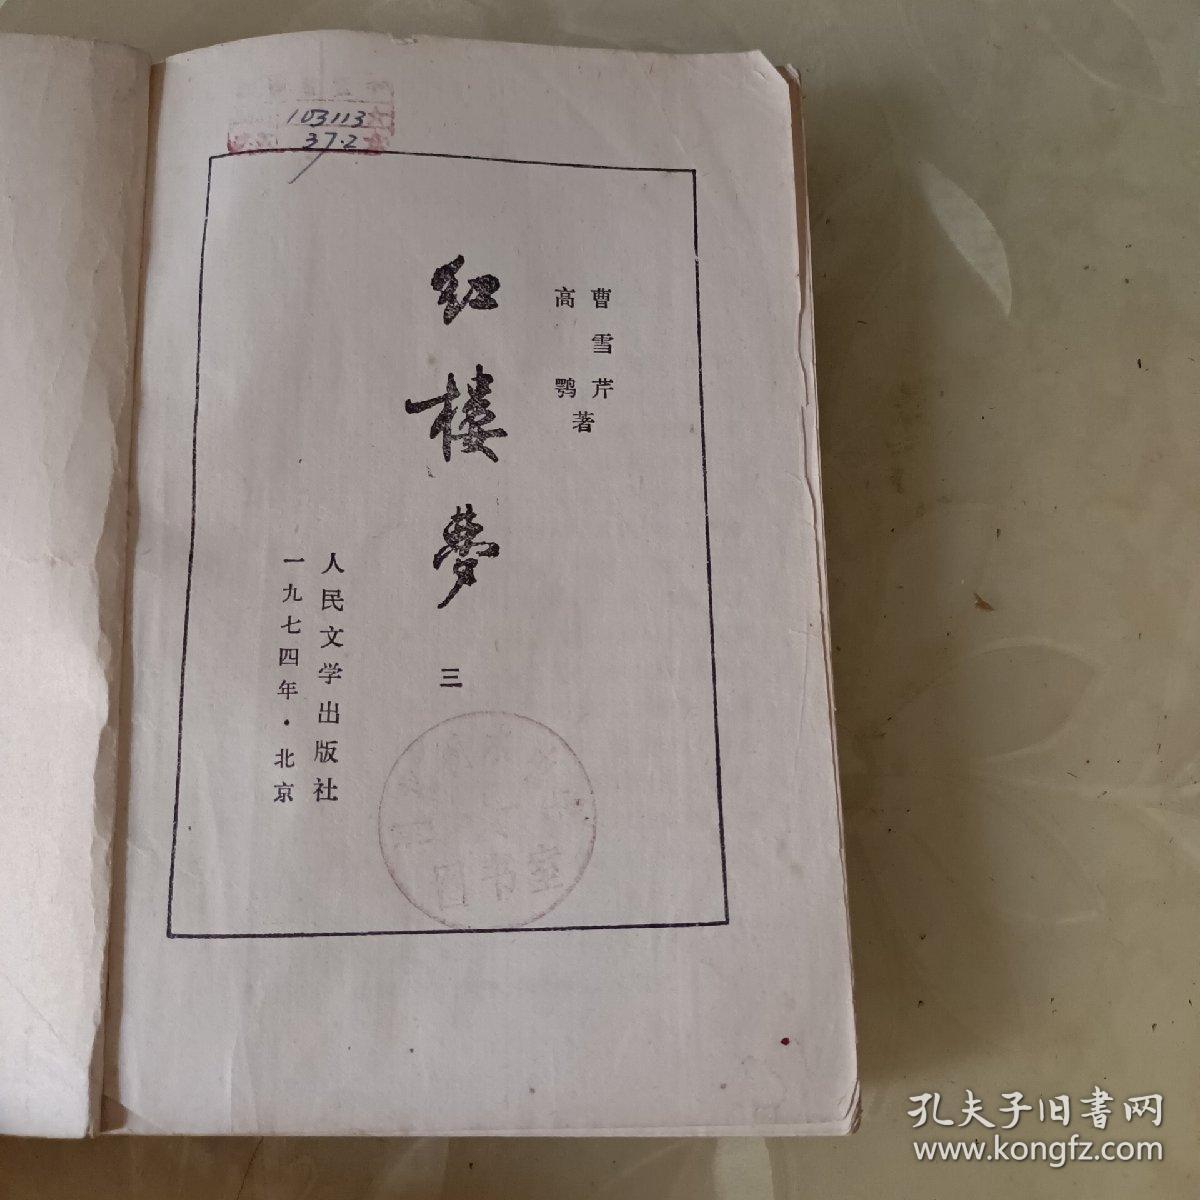 103113
37.2
曹雪芹
高鹗
著
红楼梦
三
人民文学出版社
一九七四年·北京
孔夫子旧书网
www.kongfz.com